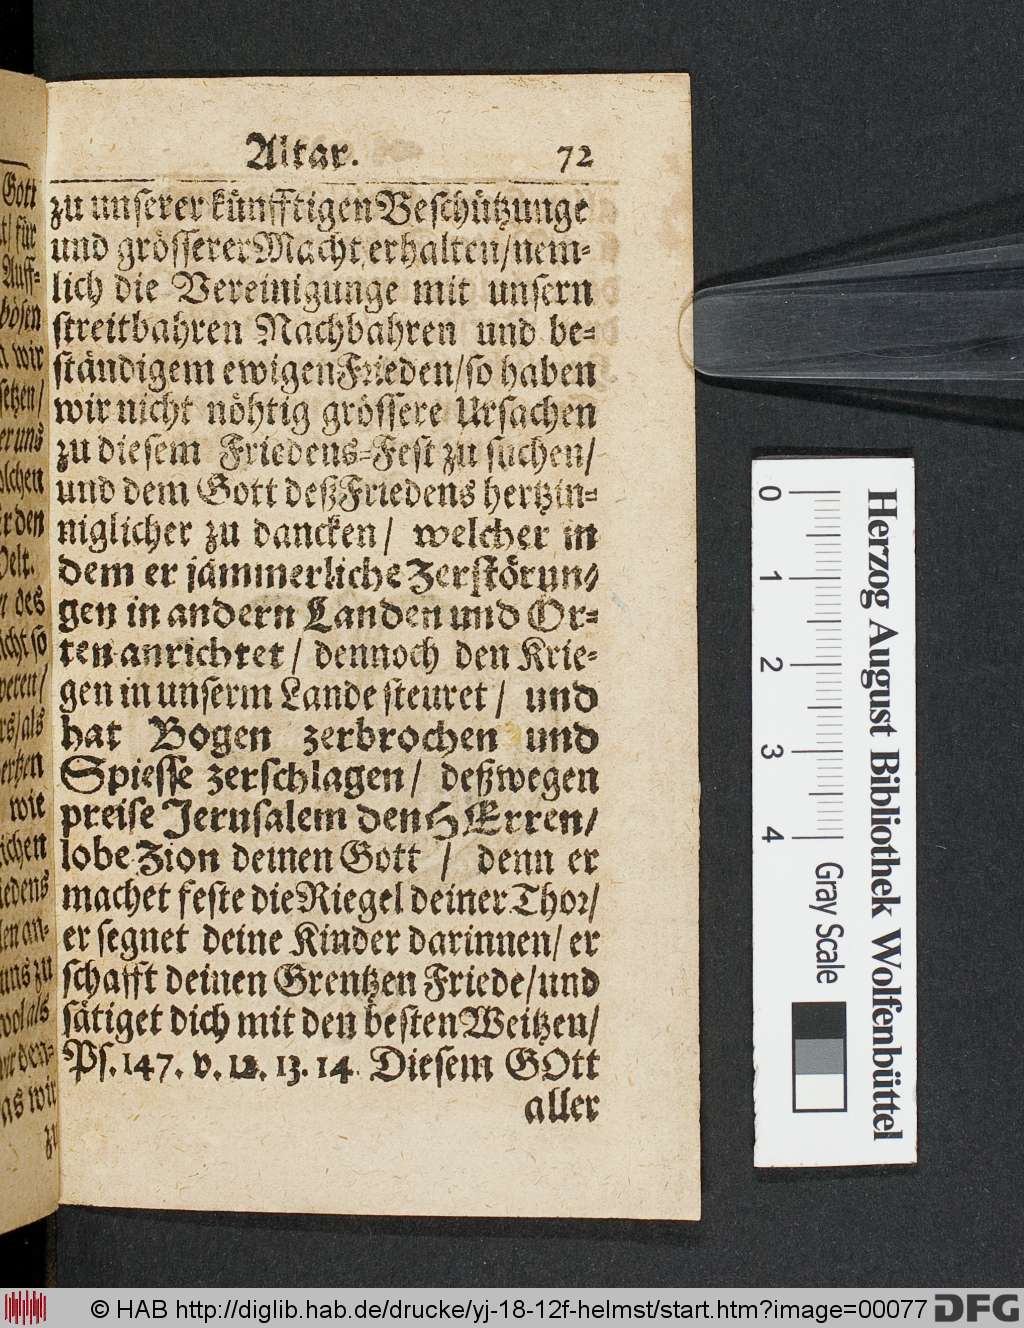 Altar. 72
zu unserer künfftigen Beschützunge
und grösserer Macht erhalten/nem-
lich die Vereinigunge mit unsern
streitbahren Nachbahren und be-
ständigem ewigen Frieden/so haben
wir nicht nöhtig grössere Ursachen
zu diesem Friedens-Fest zu suchen/
und dem Gott deß Friedens hertzin-
niglicher zu dancken/ welcher in
dem er jämmerliche Zerstörun-
gen in andern Landen und Or-
ten anrichtet/ dennoch den Krie-
gen in unserm Lande steuret/ und
hat Bogen zerbrochen und
Spiesse zerschlagen/ deßwegen
preise Jerusalem den HErren/
lobe Zion deinen Gott / denn er
machet feste die Riegel deiner Thor/
er segnet deine Kinder darinnen/ er
schafft deinen Grentzen Friede/und
sätiget dich mit den besten Weitzen/
Ps. 147. v. 12. 13. 14. Diesem GOtt
aller
Gott
für
Auff-
bösen
wir
setzen/
er uns
olchen
den
Welt.
des
icht so
als
wie
zu
0 1 2 3 4
Gray Scale
Herzog August Bibliothek Wolfenbüttel
© HAB http://diglib.hab.de/drucke/yj-18-12f-helmst/start.htm?image=00077 DFG